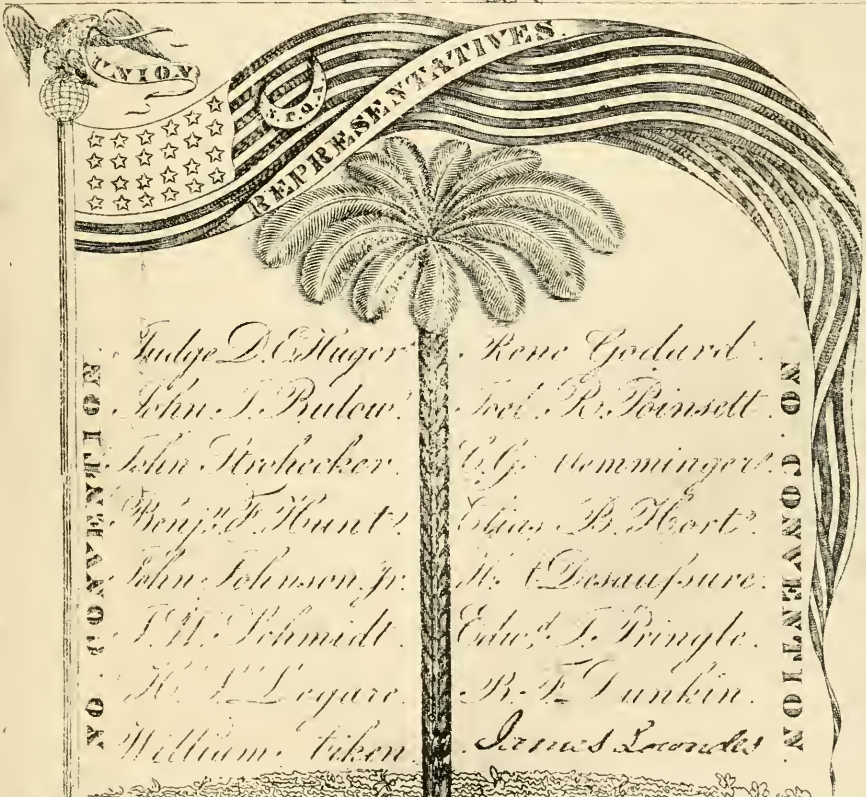 UNION
S.P.Q.A
REPRESENTATIVES.
NO CONVENTION
Judge D. E. Huger
John J. Bulow.
John Strohecker.
Benjn. F. Hunt.
John Johnson, Jr.
J. W. Schmidt.
H. S. Legare.
William Aiken.
Rene Godard.
Joel. R. Poinsett.
C. G. Memminger.
Elias B. Hort.
H. A Desaufsure.
Edwd. J. Pringle.
B. F. Dunkin.
James Lowndes
NO. CONVENTION.